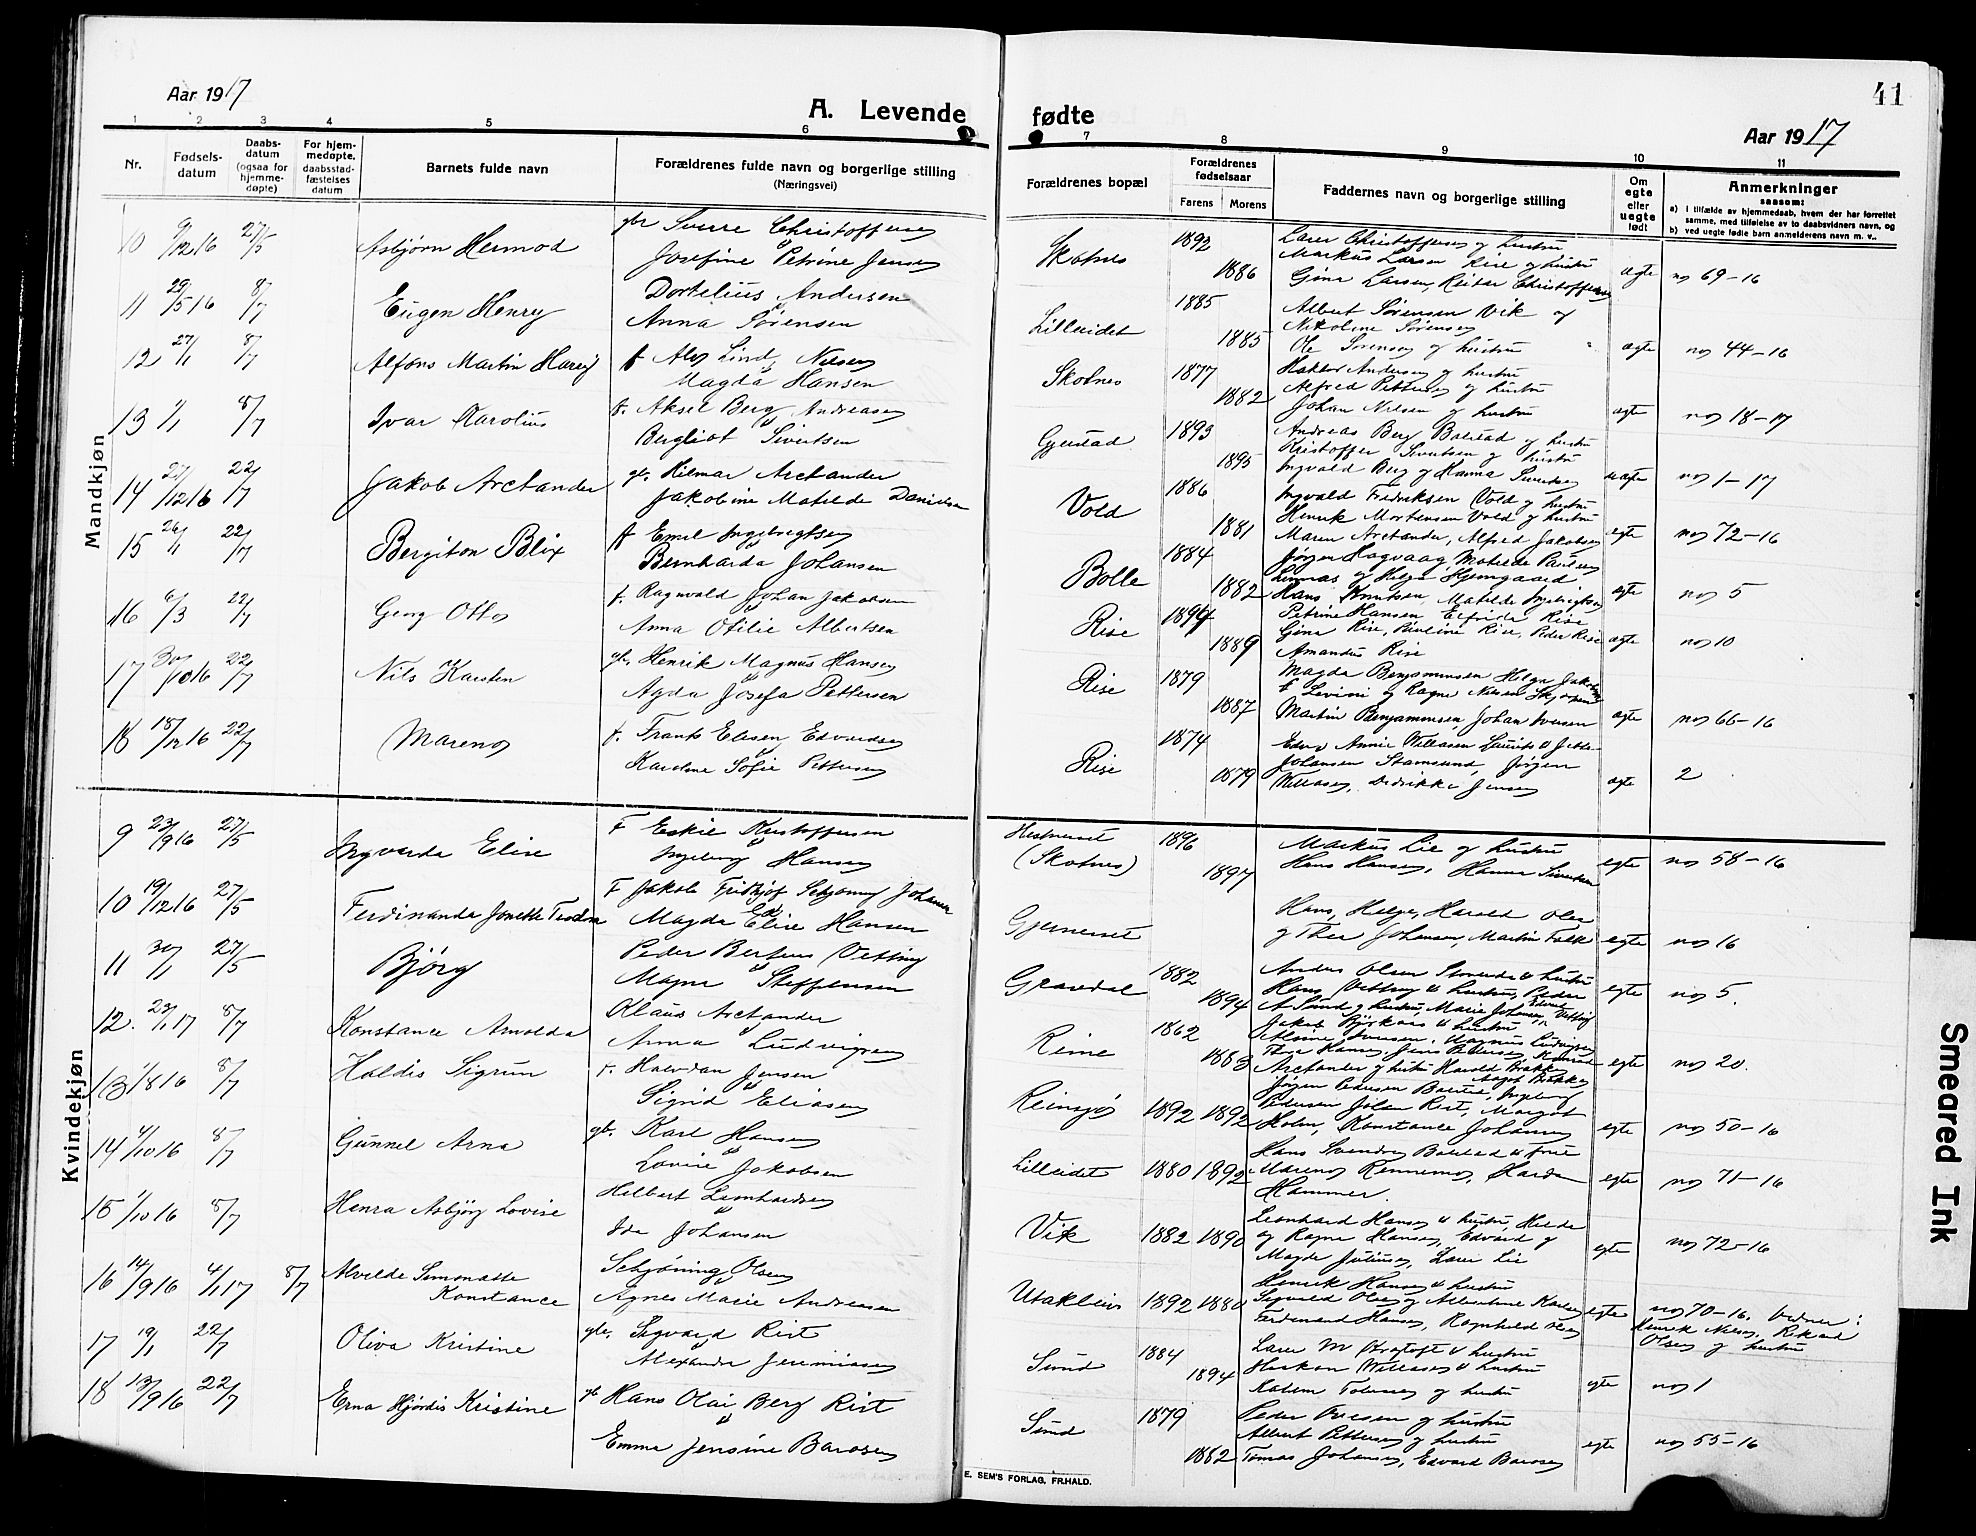 Aar 1917
A. Levende
fødte
Aar 1917
41
1 2 3 4 5 6 7 8 9 10 11
Nr.
Fødsels-
datum
Daabs-
datum
(ogsaa for
hjemme-
døpte)
For hjem-
medøpte,
daabsstad-
fæstelses
datum
Barnets fulde navn
Forældrenes fulde navn og borgerlige stilling
(Næringsvei)
Forældrenes bopæl
Forældrenes
fødselsaar
Farens Morens
Faddernes navn og borgerlige stilling
Om
egte
eller
uegte
født
Anmerkninger
saasom:
a) i tilfælde av hjemmedaab, hvem der har forrettet
samme, med tilføielse av to daabsvidners navn, og
b) ved uegte fødte barn anmelderens navn m. v..
Mandkjøn
10 9/12 16 27/5 Asbjørn Hermod gbr Sverre Christoffersen
Josefine Petrine Jensen
Skotnes 1892 1886
Lars Christoffersen og hustru
Markus Larsen Rise og hustru
Gina Larsen, Reidar Christoffersen
egte no 69-16
11 29/5 16 8/7 Eugen Henry Dortelius Andersen
Anna Sørensen
Lilleidet 1885 1885
Albert Sørensen Vik og
Nikoline Sørensen
Ole Sørensen og hustru
egte no 44-16
12 27/1 8/7 Alfons Martin Harry f Alf Lind Nilsen
Magda Hansen
Skotnes 1877 1882
Andersen og hustru
Alfred Pettersen og hustru
Johan Nilsen og hustru
egte no 18-17
13 1/1 8/7 Ivar Karolius f. Aksel Berg Andreasen
Bergliot Sivertsen
Gjerstad 1893 1895
Andreas Berg Balstad og hustru
Kristoffer Sivertsen og hustru
Ingvald Berg og Hanna Sivertsen
uegte no 1-17
14 27/12 16 22/7 Jakob Arctander gb. Hilmar Arctander
Jakobine Matilde Danielsen
Vold 1886 1881
Ingvald Fredriksen Vold og hustru
Henrik Mortensen Vold og hustru
Maren Arctander, Alfred Jakobsen
egte no 72-16
15 26/1 22/7 Bergiton Blix f Emil Ingebrigtsen
Bernharda Johansen
Bolle 1884 1882
Jørgen Hagvaag, Matilde Paulsen
Linnas og Helga Hjemgaard
Hans Knutsen, Matilde Ingebrigtsen
egte no 5
16 6/3 22/7 Georg Otto f. Ragnvald Johan Jakobsen
Anna Otilie Albertsen
Rise 1894 1889
Petrine Hansen Elfrida Rise
Gina Rise, Pauline Rise, Peder Rise
Amandus Rise
egte no 10
17 30/10 16 22/7 Nils Karsten gb. Henrik Magnus Hansen
Agda Josefa Pettersen
Rise 1879 1887
Magda Benjaminsen Helga Jakobsen
f Levine og Ragna Nilsen
Martin Benjaminsen, Johan Iversen
egte no 66-16
18 18/12 16 22/7 Mareno f. Frants Elisen Edvardsen
Karoline Sofie Pettersen
Rise 1874 1879
Johansen Stamsund, Jørgen
Willasen, Didrikke Jensen
egte 2
Kvindekjøn
9 23/9 16 27/5 Ingvarda Elise F Eskil Kristoffersen
Ingeborg Hansen
(Skotnes) 1896 1897
Markus Lie og hustru
Hans Hansen, Hanna Sivertsen
egte no 58-16
10 19/12 16 27/5 Ferdinanda Jonette F Jakob Fridtjof Schjøning Johansen
Magda Elise Hansen
Gjerneset
Hans, Helge, Harald Olea
og Thea Johansen, Martin Falk
egte no 16
11 30/1 27/5 Bjørg Peder Berteus Vetting
Magna Steffensen
Gravdal 1882 1894
Anders Olsen Storeide & hustru
Hans Vetting & hustru, Peder
A Sund og hustru, Marie Johansen, Vetting
egte no 5.
12. 29/1 17 8/7 Konstance Arnolda Klaus Arctander
Anna Ludvigsen
Reine 1862 1883
Arctander og hustru Harald Bakke
egte no 20.
13 1/8 16 8/7 Haldis Sigrun f. Halvdan Jensen
Sigrid Eliasen
Reinsjø 1892 1892
Jørgen Pedersen Balstad, Ingeborg
Pedersen Johan Rist, Margot
Holm, Konstance Johansen
egte no 50-16
14 4/10 16 8/7 Gunnel Arna gb. Karl Hansen
Lovise Jakobsen
Lilleidet 1880 1892
Hans Svendsen Balstad & frue
Mareno Rennemo, Harda
Hammer.
egte no 71-16
15 1/10 16 8/7 Henra Asbjørg Lovise Hilbert Leonhardsen
Ida Johansen
Vik 1882 1890
Leonhard Hansen & hustru, Hilda
og Ragna Hansen, Edvard og
Magda Julinsen, Lars Lie
egte no 72-16
16 14/9 16 4/1 17 8/7 Alvilde Simonette
Konstance
Schjøning Olsen
Agnes Marie Andreasen
Utakleiv 1892 1880
Henrik Hansen & hustru
Sigvald Olsen og Albertine Karlsen
Ferdinand Hansen, Ragnhild Olsen
egte no 70-16. Vidner:
Henrik Nilsen, Rikard
Olsen og hustru
17 19/1 22/7 Oliva Kristine gbr. Sigvard Rist
Alexandra Jeremiasen
Sund 1884 1894
Lars M Krogtoft & hustru
Haakon Willasen & hustru
Tolersen og hustru
egte no 1
18 13/9 16 22/7 Erna Hjørdis Kristine gb Hans Olai Berg Rist
Emma Jensine Barosen
Sund 1879 1882
Peder Olesen og hustru
Albert Pettersen og hustru
Tomas Johansen, Edvard Barosen
egte no 55-16
E. SEM'S FORLAG, FR.HALD.
Smeared Ink